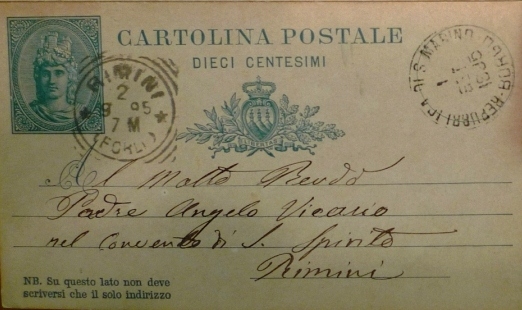 CARTOLINA POSTALE
DIECI CENTESIMI
RIMINI
2
9 95
7 M
(FORLI)
REPUBBLICA DI S. MARINO BORGO
1
95
Al Molto Revdo
Padre Angelo Vicario
nel Convento di S. Spirito
Rimini
NB. Su questo lato non deve
scriversi che il solo indirizzo